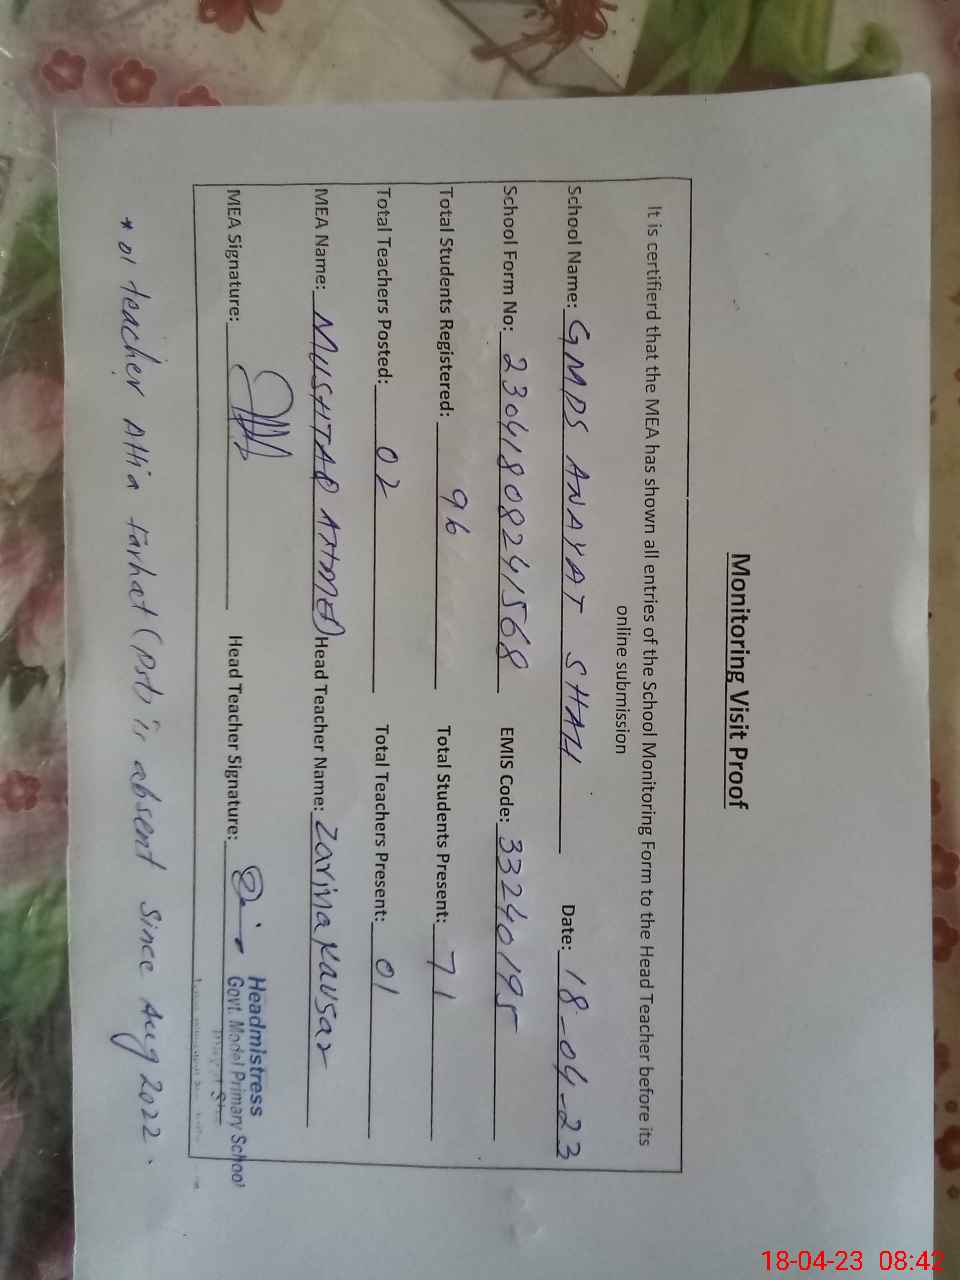 Monitoring Visit Proof
It is certifierd that the MEA has shown all entries of the School Monitoring Form to the Head Teacher before its
online submission
School Name: GMPS ANAYAT SHAH Date: 18-04-23
School Form No: 23041808241568 EMIS Code: 33240195
Total Students Registered: 96 Total Students Present: 71
Total Teachers Posted: 02 Total Teachers Present: 01
MEA Name: MUSHTAQ AHMED Head Teacher Name: Zarina Kausar
MEA Signature: Head Teacher Signature:
Headmistress
Govt. Model Primary School
* 01 teacher Attia Farhat (PST) is absent since Aug 2022.
18-04-23 08:42